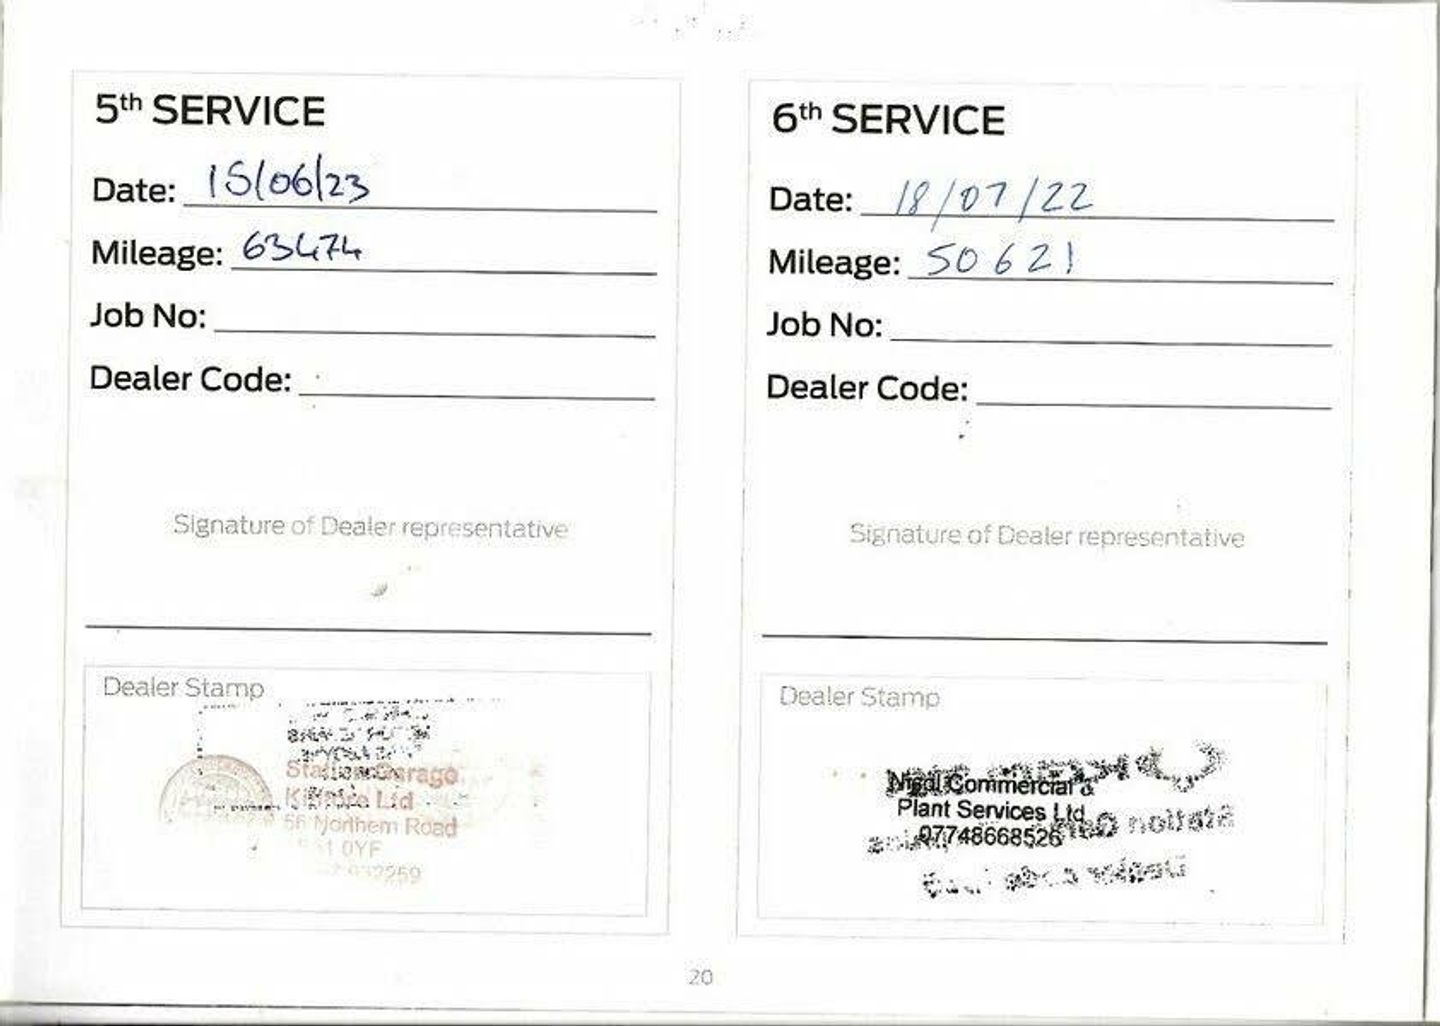 5th SERVICE
Date: 15/06/23
Mileage: 63474
Job No:
Dealer Code:
Signature of Dealer representative
Dealer Stamp
Station Garage
Ltd
56 Northern Road
0YF
6th SERVICE
Date: 18/07/22
Mileage: 50621
Job No:
Dealer Code:
Signature of Dealer representative
Dealer Stamp
Commercial &
Plant Services Ltd
07748668526
20